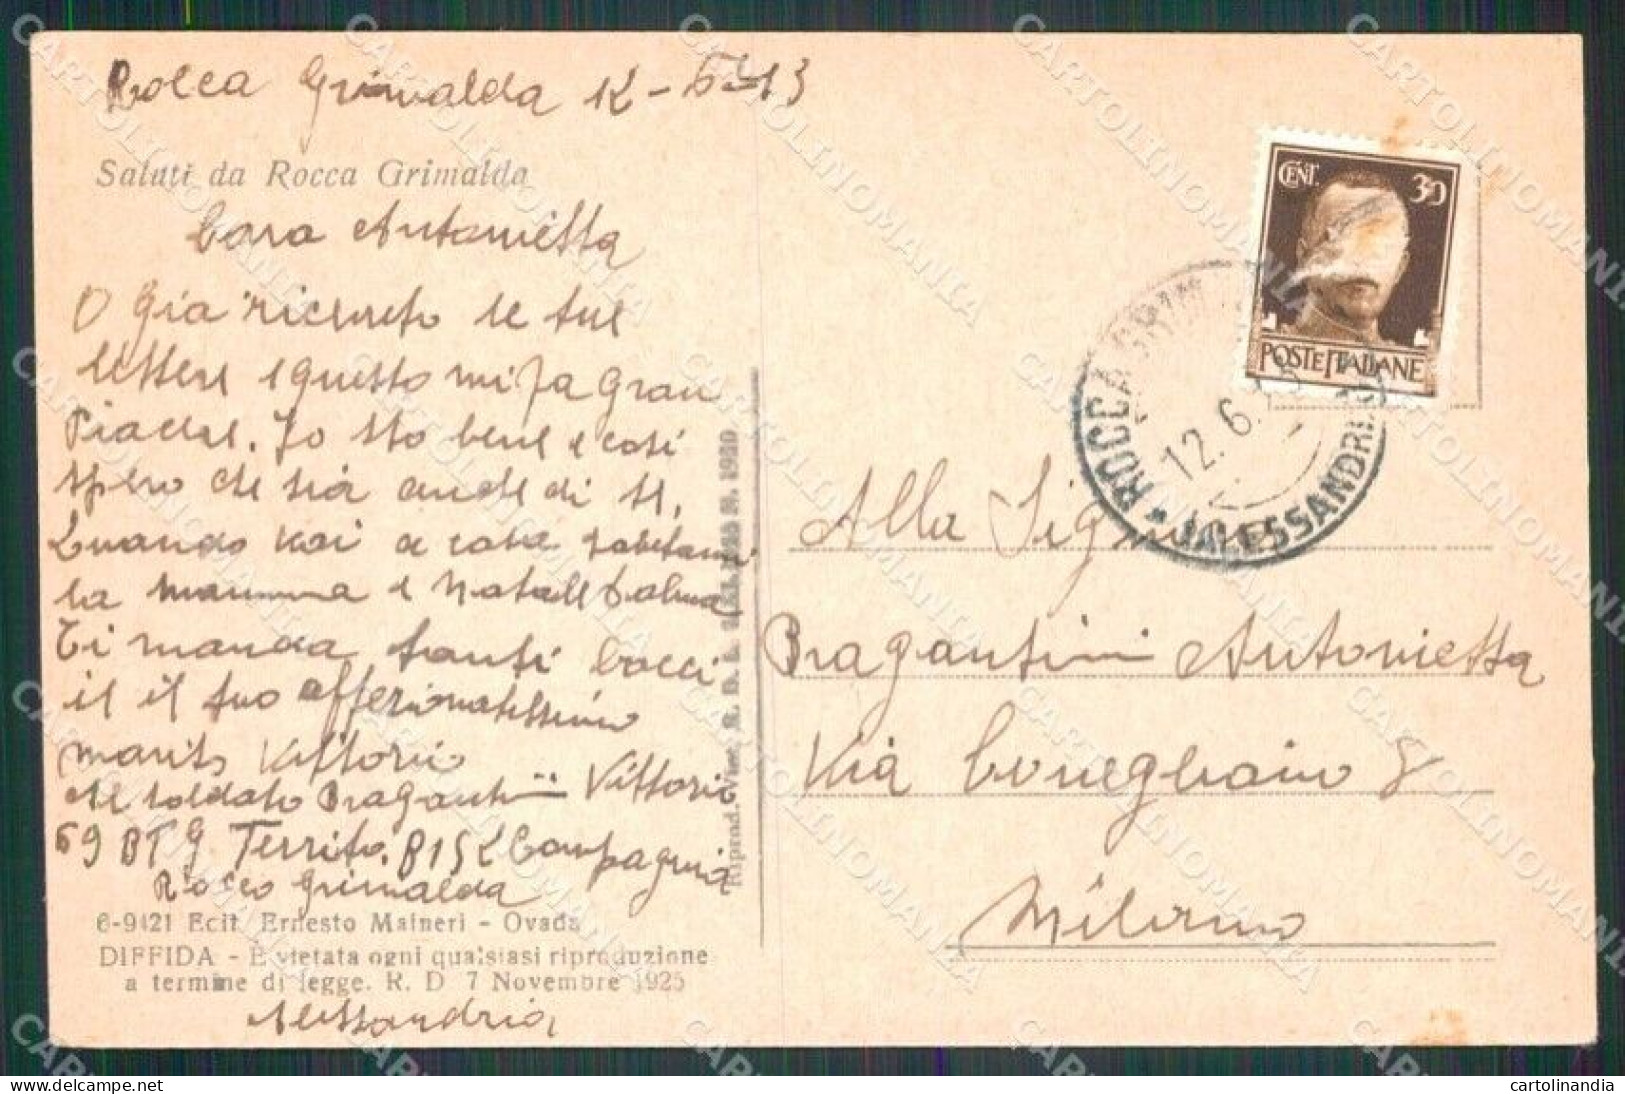 Rocca Grimalda 12-6-43
Saluti da Rocca Grimalda
Cara Antonietta
O Gia ricevuto le tue
lettere e questo mi fa Gran
Piacere. Io sto bene e così
spero che sia anche di te.
Quando vai a casa
la mamma e Natale
Ti manda tanti bacci
il tuo affezionatissimo
marito Vittorio
soldato Bragantini Vittorio
69 BTG Territo. 815 Compagnia
Rocco Grimalda
6-9421 Edit. Ernesto Maineri - Ovada
DIFFIDA - È vietata ogni qualsiasi riproduzione
a termine di legge. R. D 7 Novembre 1925
Alessandria
CENT. 30
POSTE ITALIANE
ROCCA GRIM
12.6.
ALESSANDRI
Alla Signora
Bragantini Antonietta
Via Conegliano 8
Milano
CARTOLINOMANIA
cartolinandia